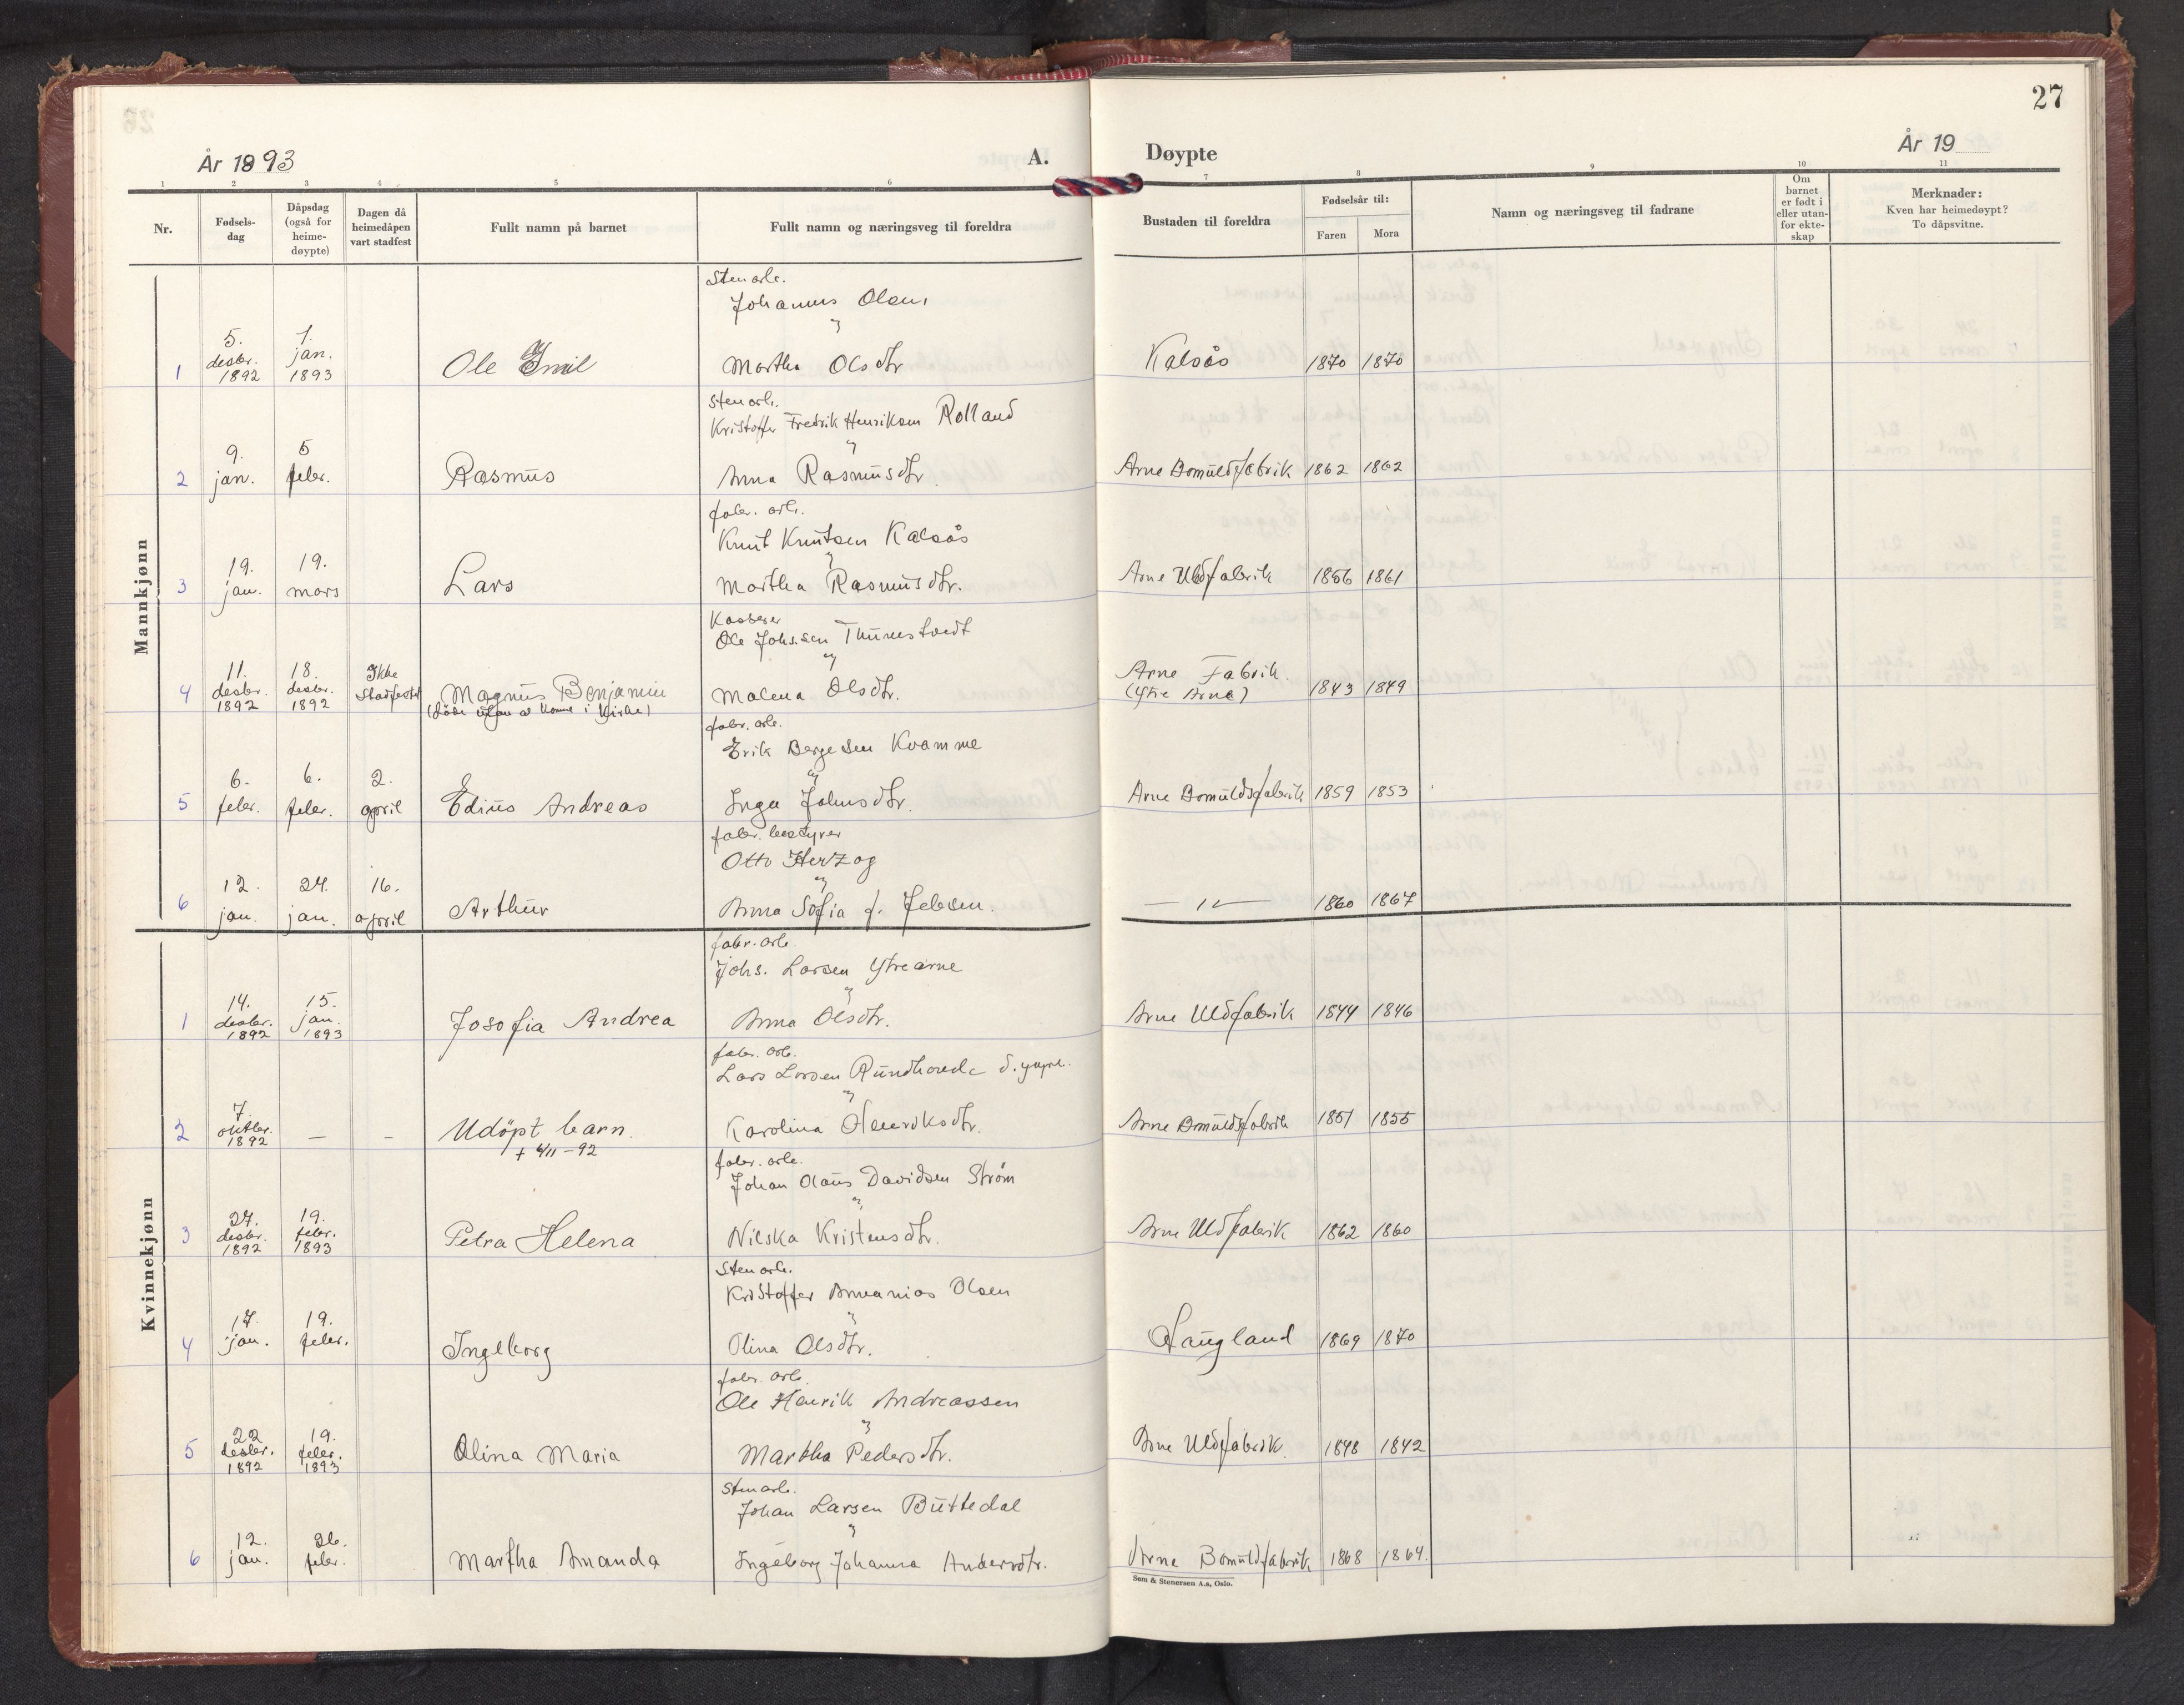 27
År 1893
A.
Døypte
År 19
1 2 3 4 5 6 7 8 9 10 11
Nr.
Fødsels-
dag
Dåpsdag
(også for
heime-
døypte)
Dagen då
heimedåpen
vart stadfest
Fullt namn på barnet
Fullt namn og næringsveg til foreldra
Bustaden til foreldra
Fødselsår til:
Faren Mora
Namn og næringsveg til fadrane
Om
barnet
er født i
eller utan-
for ekte-
skap
Merknader:
Kven har heimedøypt?
To dåpsvitne.
Mannkjønn
Stenarb.
Johannes Olsen
5. 1.
desbr. jan.
1 1892 1893 Ole Emil Martha Olsdtr Kalsås 1870 1870
Stenarb.
Kristoffer Fredrik Henriksen Rolland
9. 5
2 jan. febr. Rasmus Anna Rasmusdtr. Arne Bomuldsfabrik 1862 1862
fabr. arb.
Knut Knutsen Kalsås
19. 19.
3 jan. mars Lars Martha Rasmusdtr. Arne Uldfabrik 1856 1861
Kasserer
Ole Johssen Thunestvedt
11. 18. Ikke
4 desbr. desbr. Stadfestet Magnus Benjamin Malena Olsdtr. Arne Fabrik. 1843 1849
1892 1892 (døde uten at komme i Kirke) (Ytre Arne)
fabr. arb.
Erik Bergesen Kvamme
6. 6. 2.
5 febr. febr. april Edius Andreas Inga Johnsdtr. Arne Bomuldsfabrik 1859 1853
fabr. bestyrer
Otto Herzog
12. 24. 16.
6 jan. jan. april Arthur Anna Sofia f. Jebsen. — " — 1860 1867
Kvinnekjønn
fabr. arb.
Johs. Larsen Ytrearne
14. 15.
1 desbr. jan. Josofia Andrea Anna Olsdtr. Arne Uldfabrik 1844 1846
1892 1893
fabr. arb.
Lars Larsen Rundhovde d. yngre.
7.
2 oktbr. — - Udöpt barn. Karolina Henriksdtr. Arne Bomuldsfabrik 1851 1855
1892 + 6/11-92
fabr. arb.
Johan Olaus Davidsen Strøm
27. 19.
3 desbr. febr. Petra Helena Nilska Kristensdtr. Arne Uldfabrik 1862 1860
1892 1893
Stenarb.
Kristoffer Ananias Olsen
17. 19.
4 jan. febr. Ingeborg Olina Olsdtr. Haugland 1869 1870
fabr. arb.
Ole Henrik Andreassen
22 19.
5 desbr. febr. Olina Maria Martha Pedersdtr. Arne Uldfabrik 1848 1842
1892 1893
Stenarb.
Johan Larsen Buttedal
12. 26.
6 jan. febr. Martha Amanda Ingeborg Johanna Andersdtr. Arne Bomuldfabrik 1868 1864.
Sem & Stenersen A.s, Oslo.